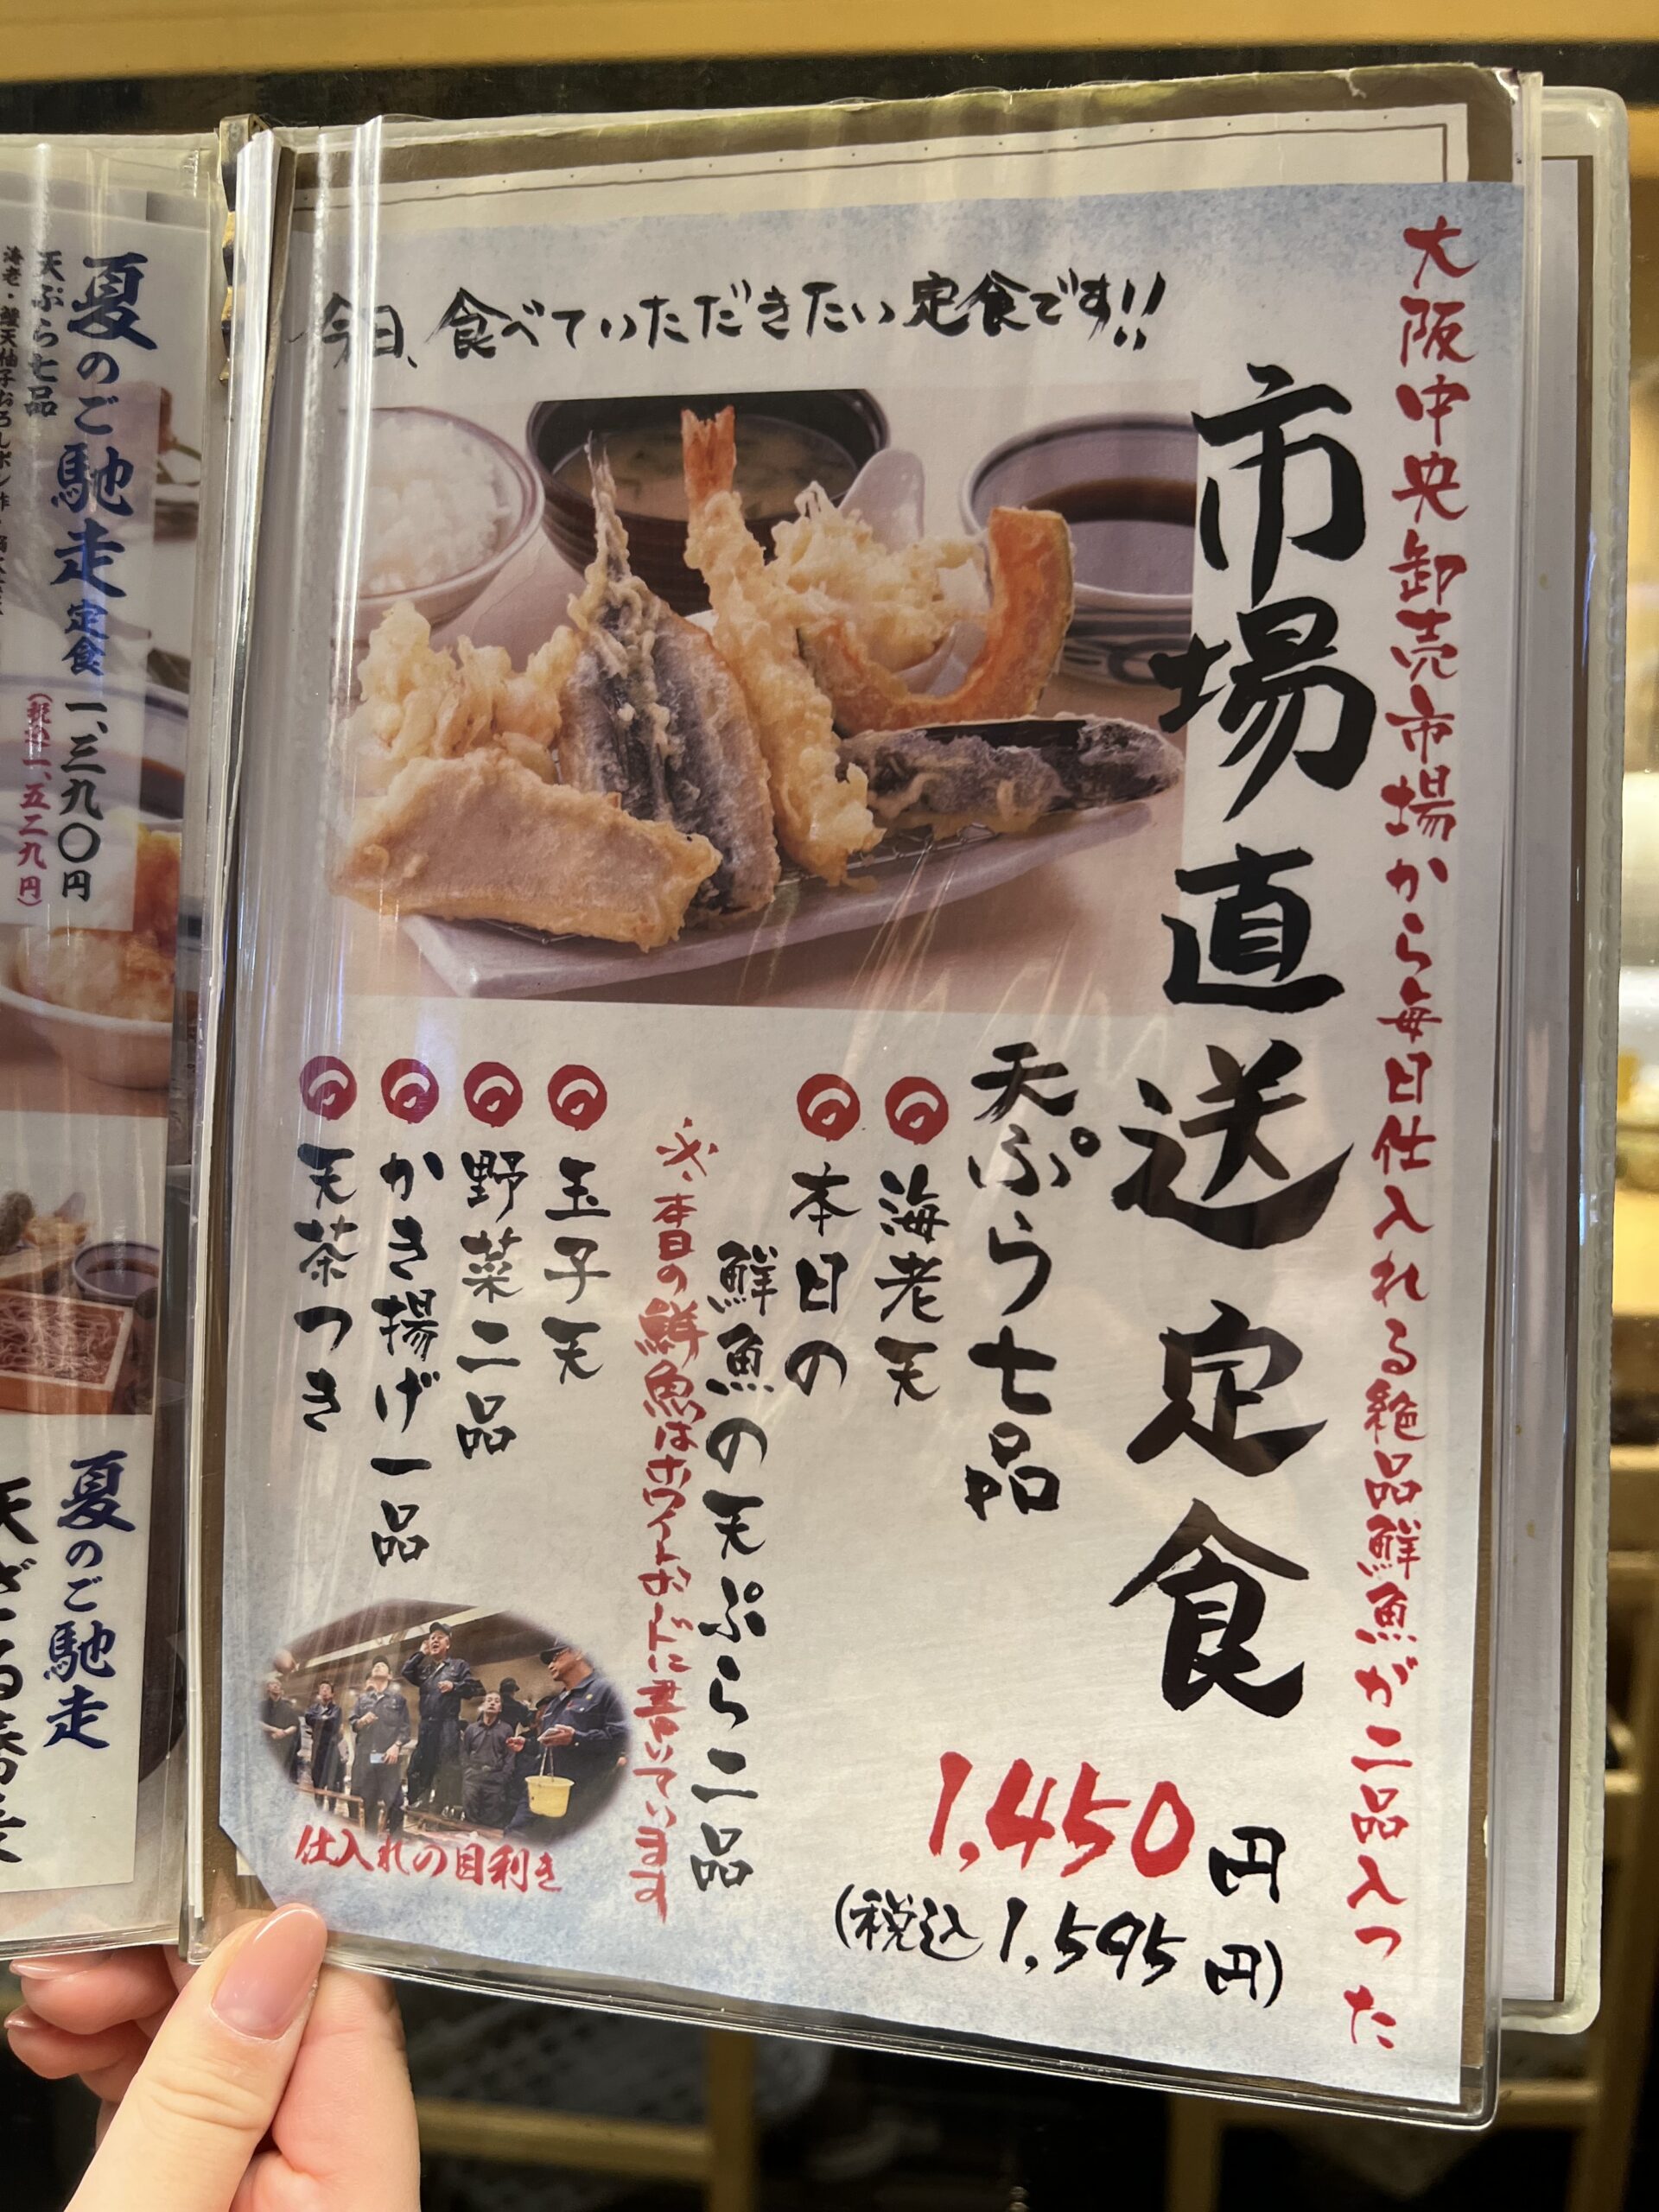 今日、食べていただきたい定食です!!
大阪中央卸売市場から毎日仕入れる絶品鮮魚が二品入った
市場直送定食
天ぷら七品
海老天
本日の
鮮魚の天ぷら二品
※本日の鮮魚はホワイトボードに書いています
玉子天
野菜二品
かき揚げ一品
天茶つき
1,450円
(税込1,595円)
仕入れの目利き
夏のご馳走定食 一、三九〇円
(税込一、五二九円)
天ぷら七品
夏のご馳走